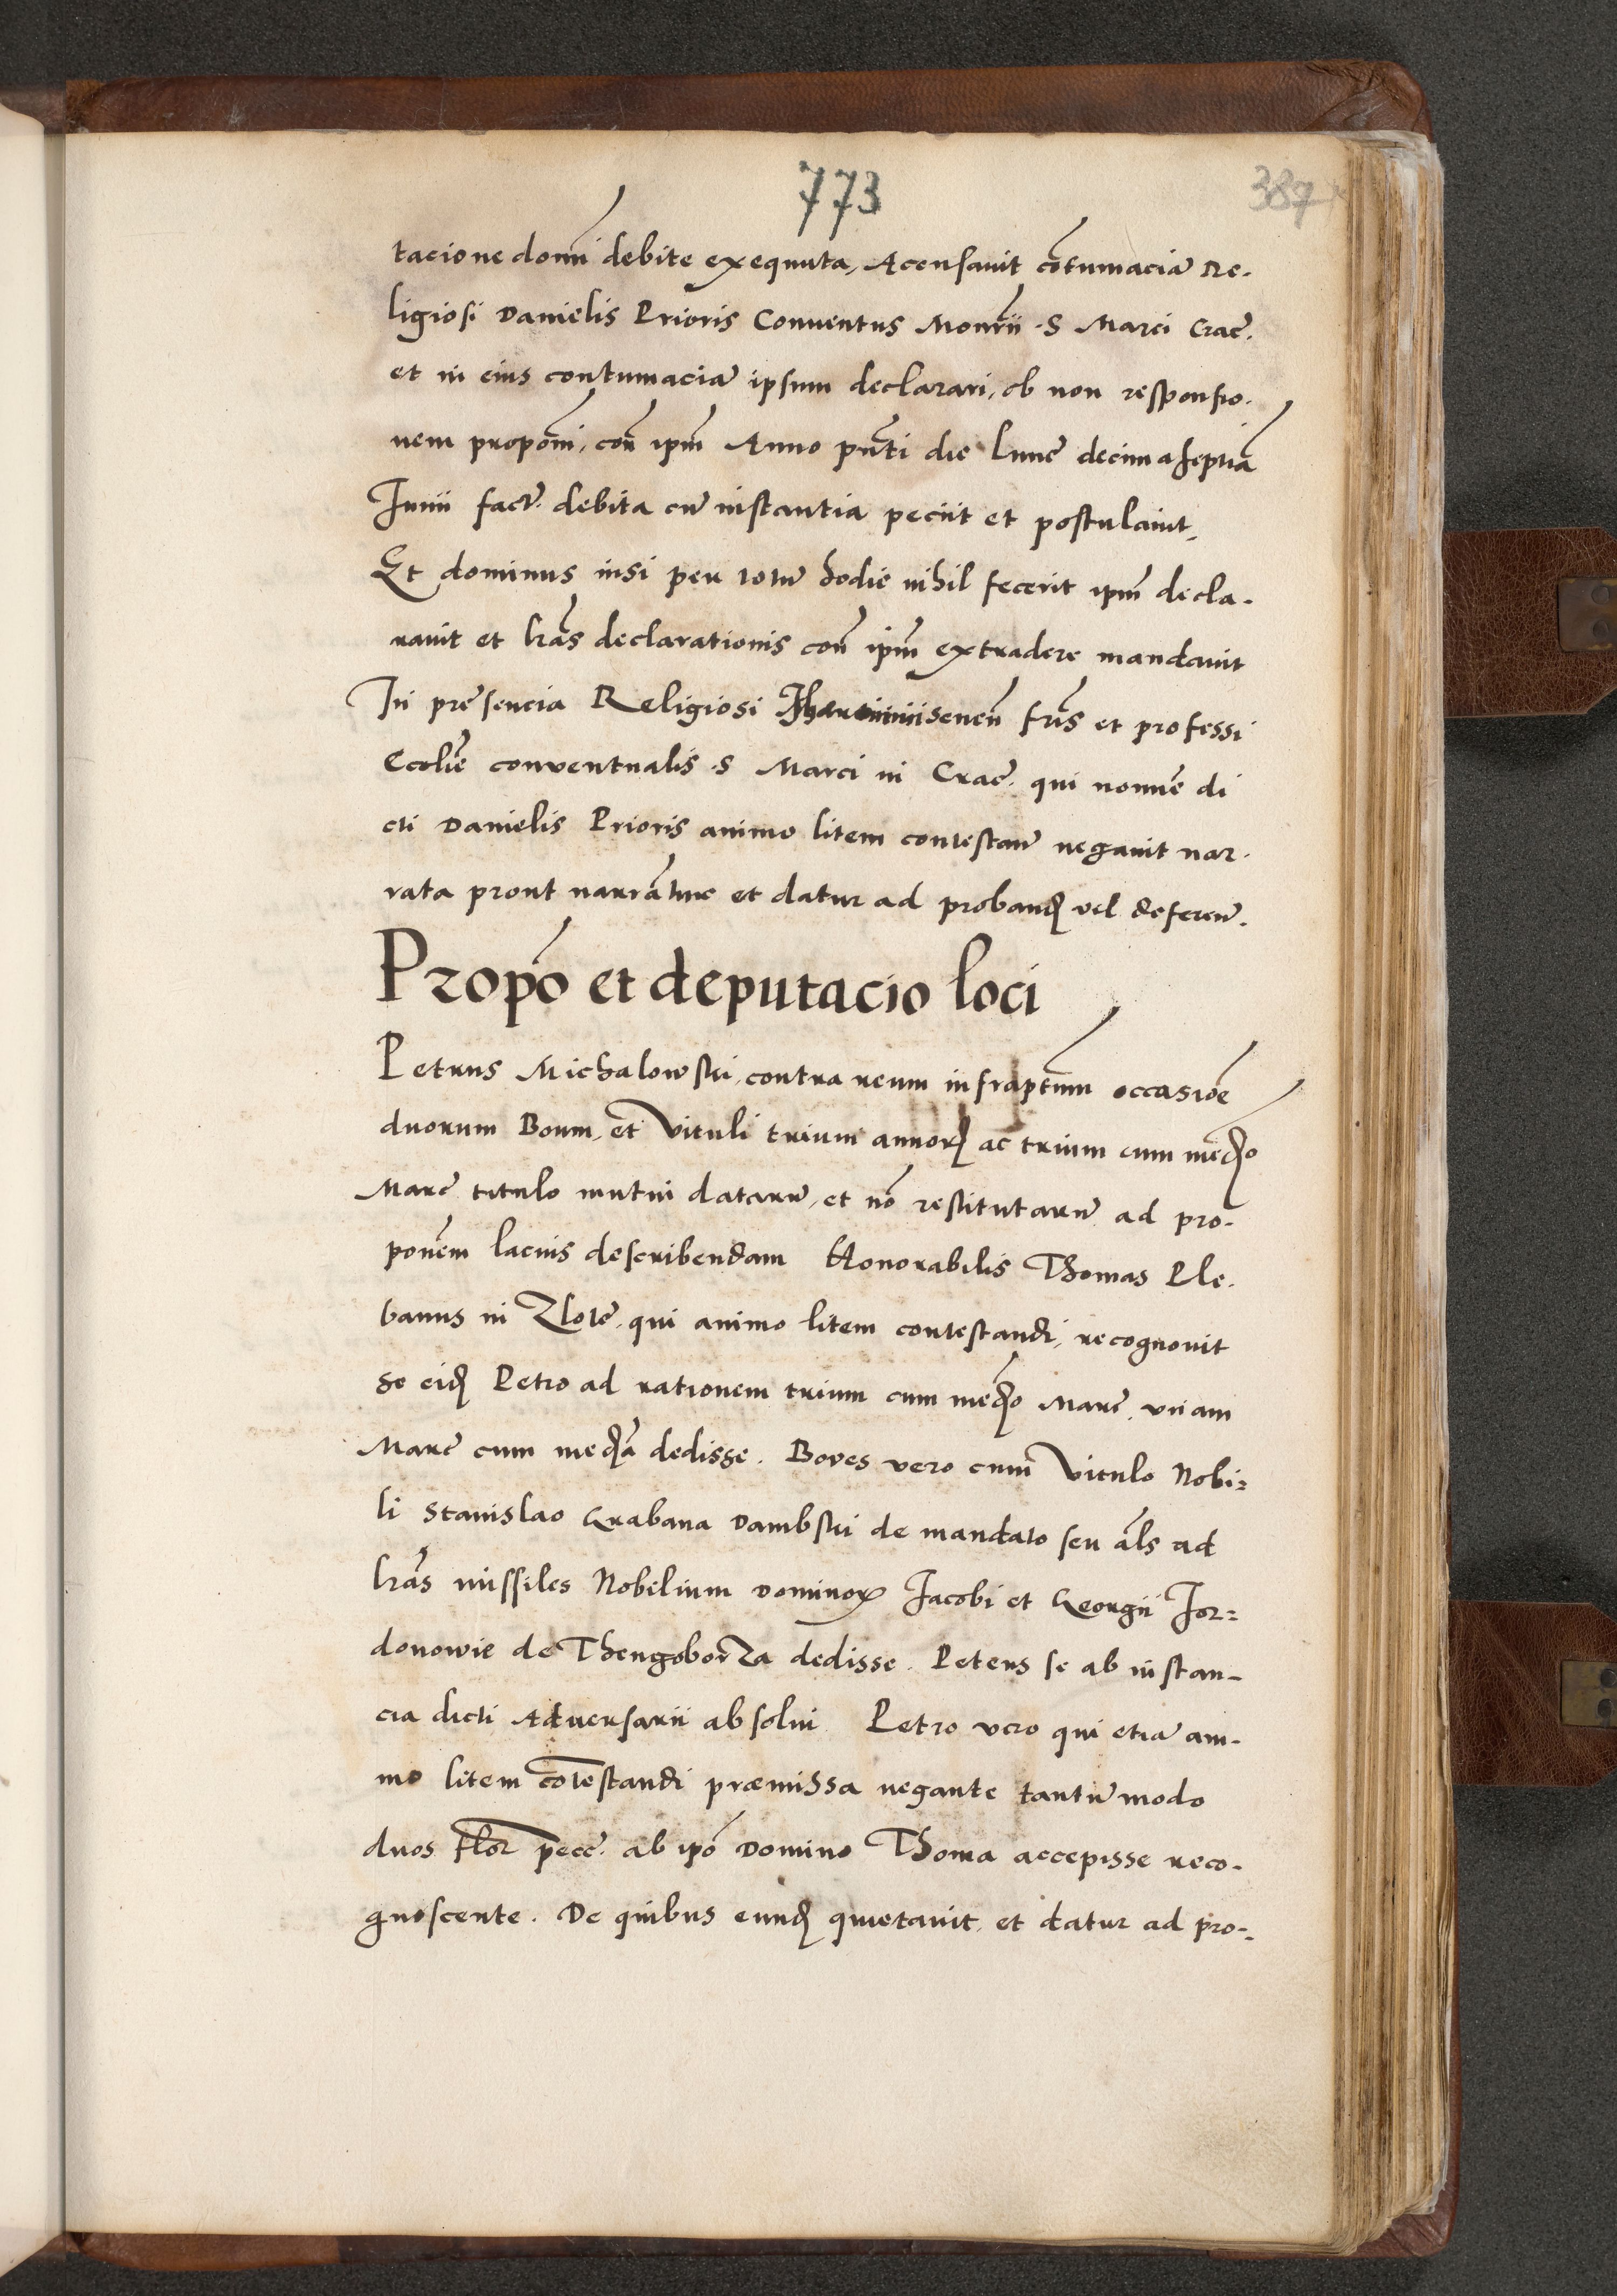 773
387
tacione domi debite exequuta, Accusauit cōtumaciā Re-
ligiosi Danielis Prioris Conuentus Monrii .S Marci Crac̄.
et in eius contumaciā ipsum declarari, ob non responsio-
nem propōni, con̄ ipm̄ Anno pn̄ti die Lune decimaseptiā
Junii fact̄. debita cū instantia peciit et postulauit,
Et dominus nisi per totū hodie nihil fecerit ipm̄ decla-
rauit et lr̄as declarationis con̄ ipm̄ extradere mandauit
In presencia Religiosi fr̄is et professi
Ecclie conventualis .S Marci in Crac̄. qui nomīe di
cti Danielis Prioris animo litem contestan̄ negauit nar-
rata prout narrātur et datur ad proband vel deferen̄.
Propō et deputacio loci
Petrus Michalowski, contra reum infraptum occasiōe
duorum Boum, et Vituli trium annorꝫ ac trium cum medꝫo
Marc̄ titulo mutui datarū, et nō restitutarū ad pro-
ponem lacius describendam Honorabilis Thomas Ple-
banus in Zlote. qui animo litem contestandi, recognouit
se eidꝫ Petro ad rationem trium cum medꝫo Marc̄, vnam
Marc̄ cum medꝫa dedisse. Boves vero cum Vitulo Nobi=
li Stanislao Grabana Dambski de mandato seu al̄s ad
lr̄as missiles Nobilium Dominorꝫ Jacobi et Georgii Jor=
donowie de Thengoborza dedisse. Petens se ab instan-
cia dicti Aduersarii absolui Petro vero qui etiā ani-
mo litem cōtestandi præmissa negante tantūmodo
duos flor pecc̄. ab ipō Domino Thoma accepisse reco-
gnoscente. De quibus eundꝫ quietauit, et datur ad pro-